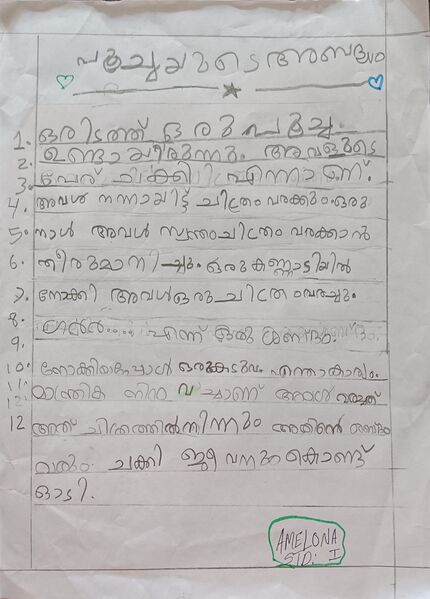 പൂച്ചയുടെ അബദ്ധം
1. ഒരിടത്ത് ഒരു പൂച്ച
2. ഉണ്ടായിരുന്നു. അവളുടെ
3. പേര് ചിക്കി എന്നാണ്.
4. അവൾ നന്നായിട്ട് ചിത്രം വരക്കും. ഒരു
5. നാൾ അവൾ സ്വന്തം ചിത്രം വരക്കാൻ
6. തീരുമാനിച്ചു. ഒരു കണ്ണാടിയിൽ
7. നോക്കി അവൾ ഒരു ചിത്രം വരച്ചു.
8. എന്ന് ഒരു ശബ്ദം.
9.
10. നോക്കിയപ്പോൾ ഒരു കടുവ. എന്താകാര്യം.
11. മാന്ത്രിക
12 അത് ചിത്രത്തിൽനിന്നും അതിന്റെ ശബ്ദം
വരും. ചക്കി ജീവനുംകൊണ്ട്
ഓടി.
AMELONA
STD: I